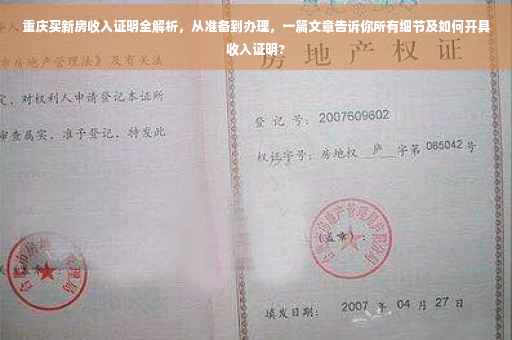 重庆买新房收入证明全解析，从准备到办理，一篇文章告诉你所有细节及如何开具
收入证明？
房地产权证
市房地产管理法》及有关法
定，对权利人申请登记本证所
审查属实，准予登记，特发此
登记号：2007609602
权证字号：房地权 庐 字第 065042 号
(盖章)：
填发日期：2007 年 04 月 27 日